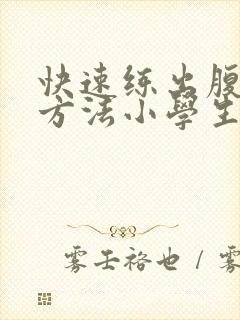 快速练出腹
方法小學生
雾壬袼也 / 雾